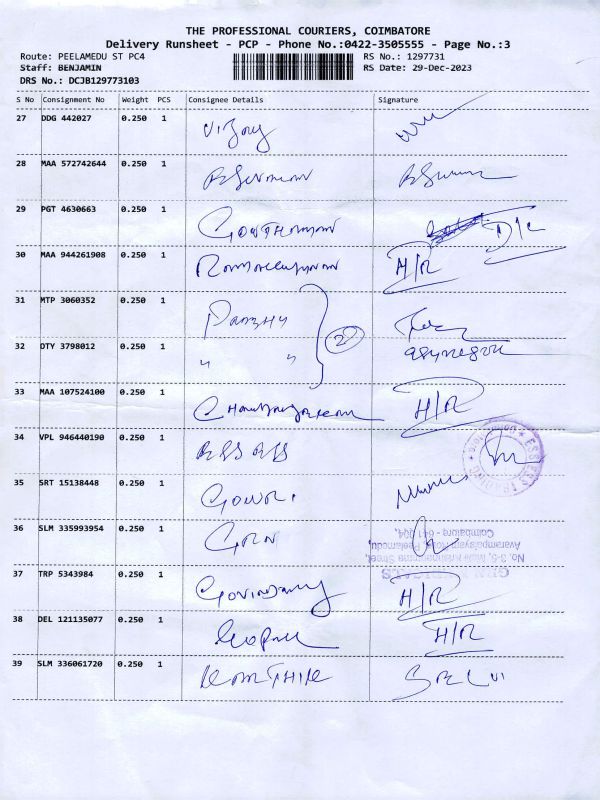 THE PROFESSIONAL COURIERS, COIMBATORE
Delivery Runsheet - PCP - Phone No.:0422-3505555 - Page No.:3
Route: PEELAMEDU ST PC4 RS No.: 1297731
Staff: BENJAMIN RS Date: 29-Dec-2023
DRS No.: DCJB129773103
S No Consignment No Weight PCS Consignee Details Signature
27 DDG 442027 0.250 1 Vijay
28 MAA 572742644 0.250 1
29 PGT 4630663 0.250 1 GOWTHAMAN D/C
30 MAA 944261908 0.250 1 H/R
31 MTP 3060352 0.250 1 PRABHU
32 DTY 3798012 0.250 1 " " 2
33 MAA 107524100 0.250 1 H/R
34 VPL 946440190 0.250 1
ESSESS TRADING
35 SRT 15138448 0.250 1 GOWRI
36 SLM 335993954 0.250 1 GRN
Coimbatore - 641 004.
37 TRP 5343984 0.250 1 H/R
38 DEL 121135077 0.250 1 GOPAL H/R
39 SLM 336061720 0.250 1 KARTHIK SELVI